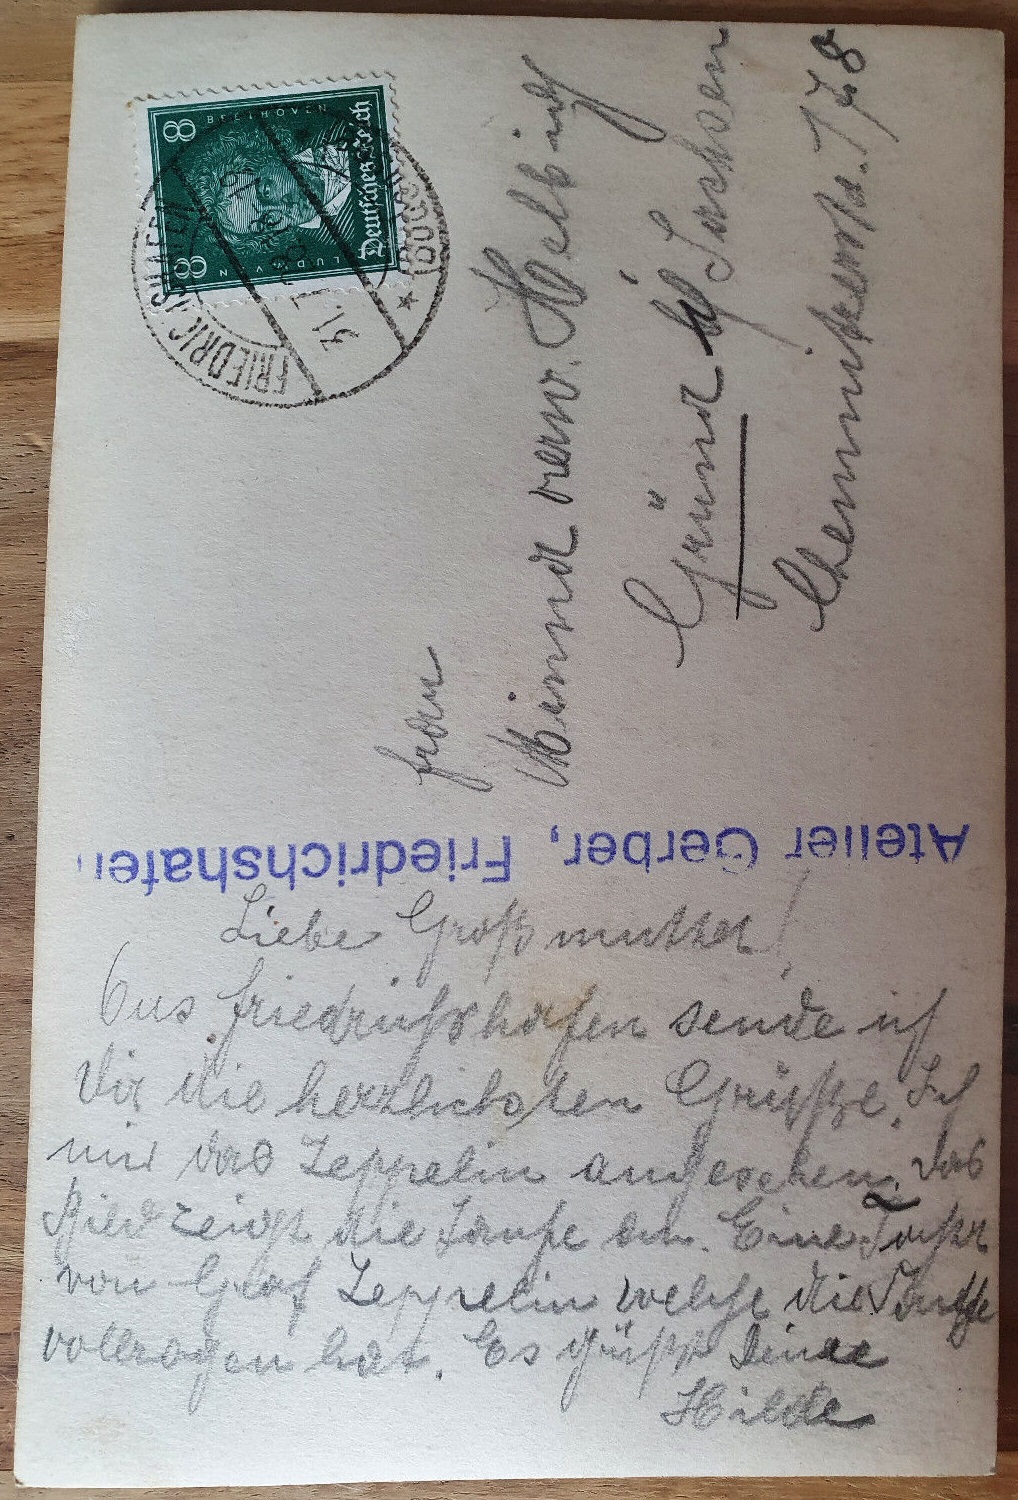 8 BEETHOVEN
Deutsches Reich
8 LUDW. V. N
FRIEDRICHSHAFEN
(BODENSEE)
31.7.28.
Frau
Minna verw. Helbig
Grüna i/ Sachsen
Chemnitzerstr. 77
Atelier Gerber, Friedrichshafen
Liebe Großmutter!
Aus Friedrichshafen sende ich
Dir die herzlichsten Grüße. Ich
mir das Zeppelin angesehen. Das
Bild zeigt die Taufe an. Eine Tochter
von Graf Zeppelin welche die Taufe
vollzogen hat. Es grüßt Deine
Hilde